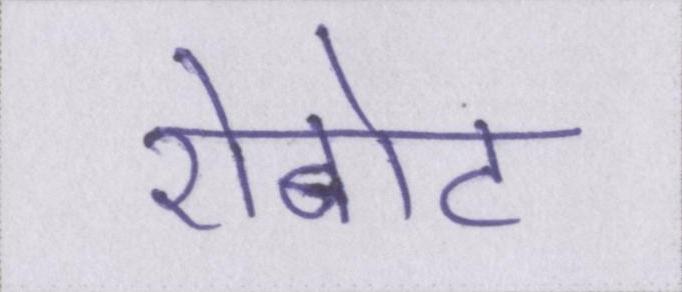 रोबोट